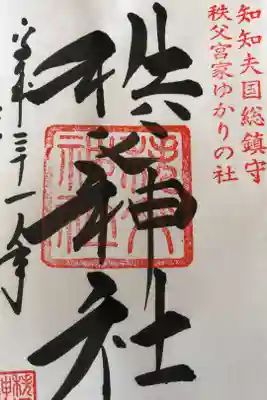 知知夫国総鎮守
秩父宮家ゆかりの社
秩父神社
平成三十一年